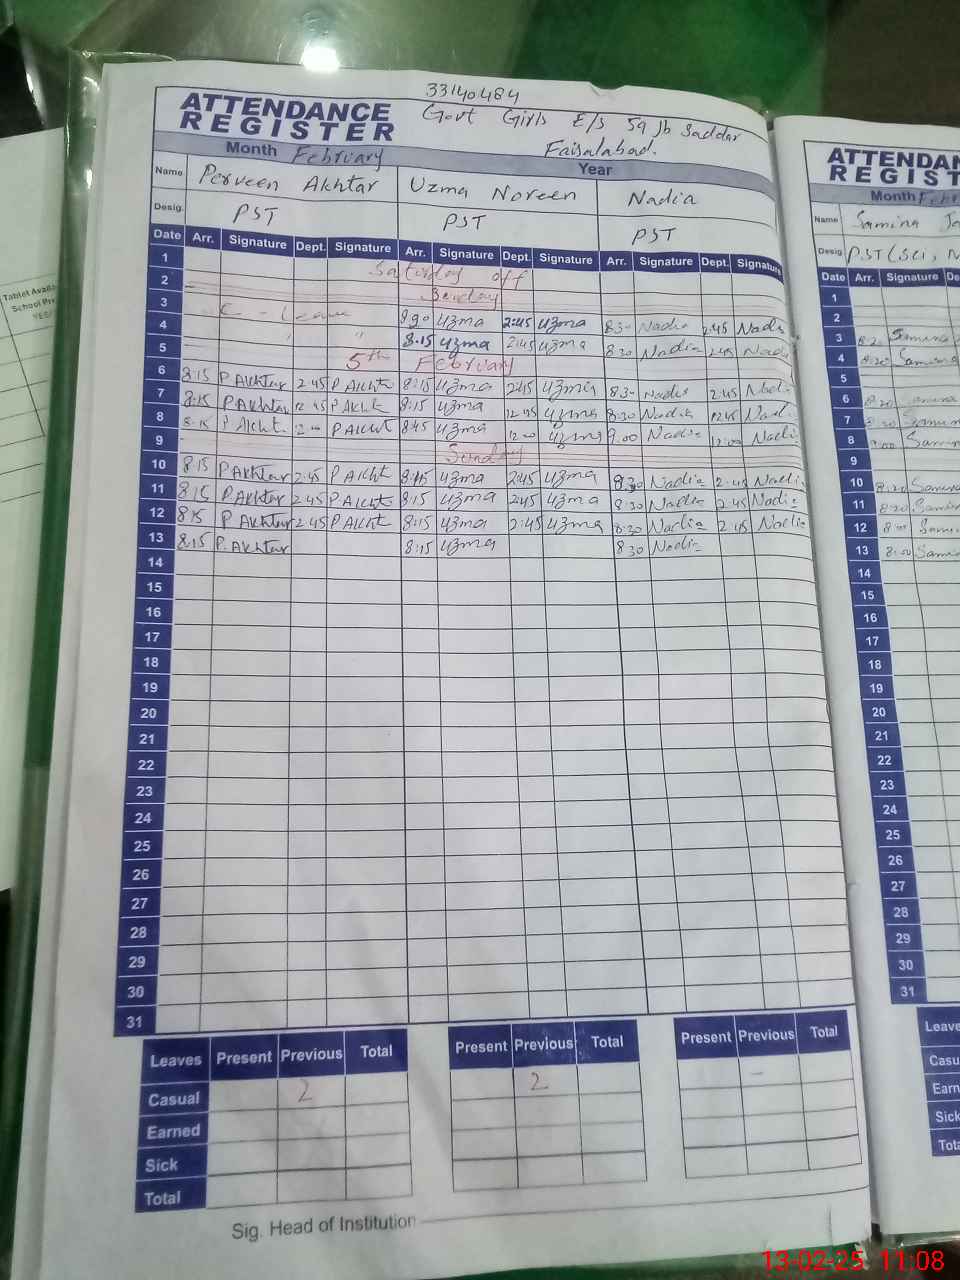 33140484
ATTENDANCE REGISTER
Govt Girls E/S 59 Jb Saddar
Faisalabad.
Month February Year
Name Perveen Akhtar Uzma Noreen Nadia
Desig. PST PST PST
Date Arr. Signature Dept. Signature Arr. Signature Dept. Signature Arr. Signature Dept. Signature
1 Saturday off
2 Sunday
3 C - Leave Uzma 2:45 Uzma 8 30 Nadia 2:45 Nadia
4 " " 8:15 Uzma 2:45 Uzma 8 30 Nadia 2:45 Nadia
5 5th February
6 8:15 P Akhtar 2:45 P Akht 8:15 Uzma 2:45 Uzma 8:30 Nadia 2:45 Nadia
7 8:15 P Akhtar 12:45 P Akht 8:15 Uzma 12:45 Uzma 8:30 Nadia 12:45 Nadia
8 8:15 P Akht. 12:00 P Akht 8:45 Uzma 12:00 Uzma 9:00 Nadia 12:00 Nadia
9 Sunday
10 8:15 P Akhtar 2:45 P Akht 8:15 Uzma 2:45 Uzma 8:30 Nadia 2:45 Nadia
11 8:15 P Akhtar 2:45 P Akht 8:15 Uzma 2:45 Uzma 8:30 Nadia 2:45 Nadia
12 8:15 P Akhtar 2:45 P Akht 8:15 Uzma 2:45 Uzma 8:30 Nadia 2:45 Nadia
13 8:15 P. Akhtar 8:15 Uzma 8 30 Nadia
14
15
16
17
18
19
20
21
22
23
24
25
26
27
28
29
30
31
Leaves Present Previous Total Present Previous Total Present Previous Total
Casual 2 2 -
Earned
Sick
Total
Sig. Head of Institution
ATTENDAN
REGIST
Month Febr
Name Samina Ja
Desig PST (Sci,
Date Arr. Signature Dep
1
2
3 8:20 Samina
4 8:20 Samina
5
6 8:20 Samina
7 8:30 Samin
8 9:00 Samin
9
10 8:20 Samina
11 8:20 Samin
12 Sami
13 8:00 Samin
14
15
16
17
18
19
20
21
22
23
24
25
26
27
28
29
30
31
Leave
Casu
Earn
Sick
Tota
Tablet Availa
School Pre
YES/
13-02-25 11:08